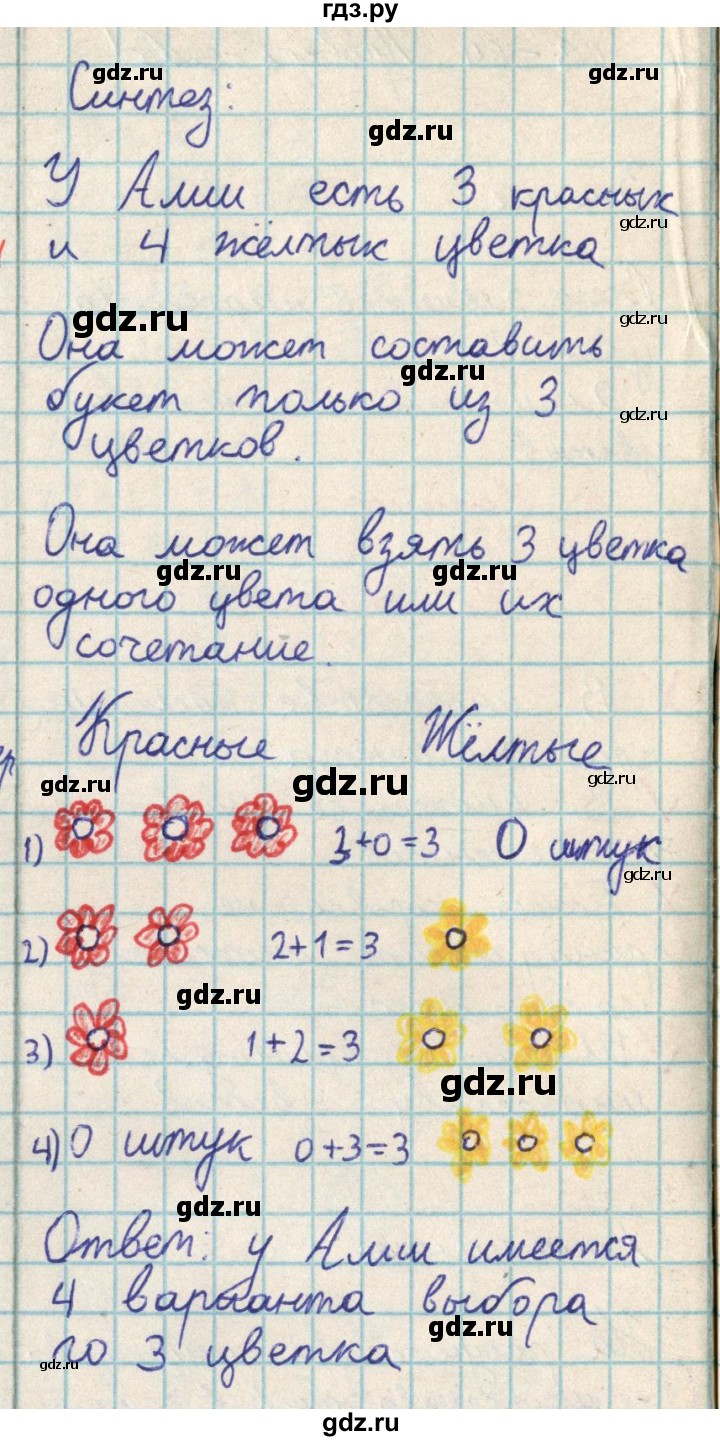 гдз.ру
gdz.ru gdz.ru
Синтез:
gdz.ru
У Алии есть 3 красных
gdz.ru
и 4 жёлтых цветка
gdz.ru gdz.ru
Она может составить
gdz.ru
букет только из 3
gdz.ru
цветков.
Она может взять 3 цветка
gdz.ru gdz.ru
одного цвета или их
сочетание.
Красные Жёлтые
gdz.ru gdz.ru
1) 3+0=3 0 штук
gdz.ru
2) 2+1=3
gdz.ru
3) 1+2=3
gdz.ru
4) 0 штук 0+3=3
gdz.ru
Ответ: у Алии имеется
4 варианта выбора
gdz.ru
по 3 цветка
gdz.ru
gdz.ru